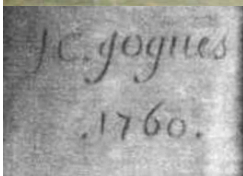 J C. gogues
.1760.